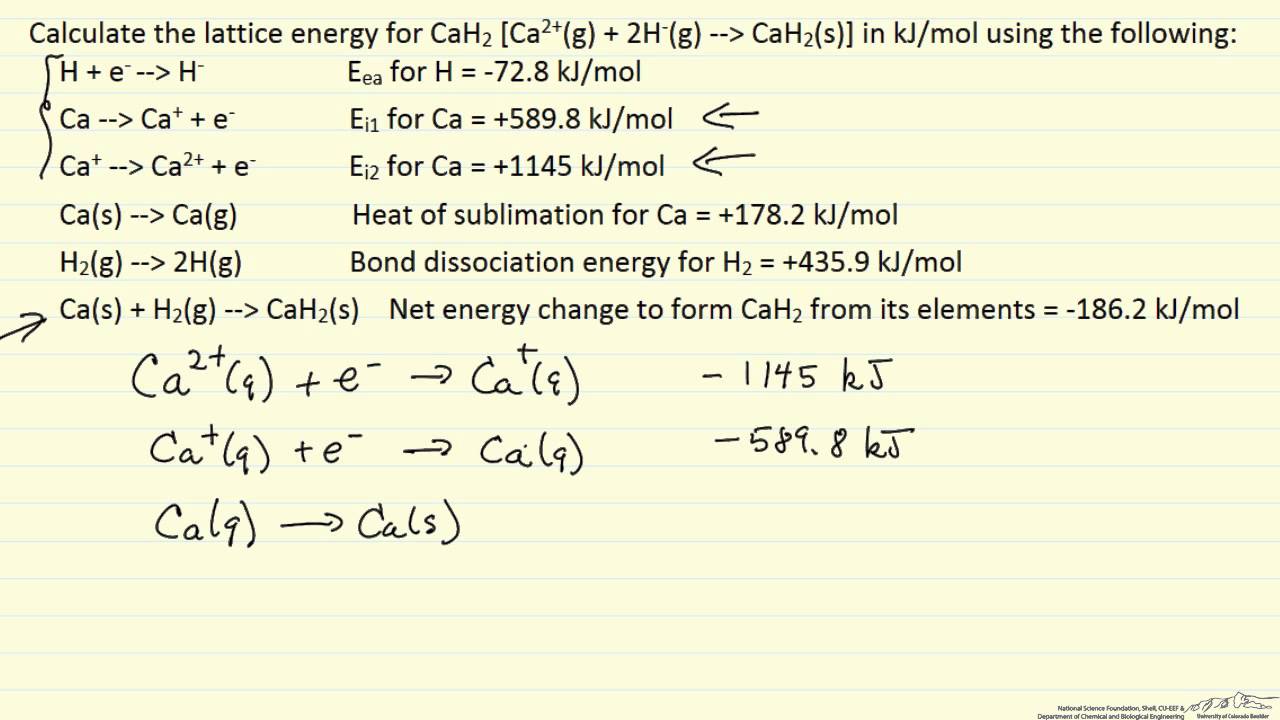 Calculate the lattice energy for CaH₂ [Ca²⁺(g) + 2H⁻(g) --> CaH₂(s)] in kJ/mol using the following:
H + e⁻ --> H⁻ Eₑₐ for H = -72.8 kJ/mol
Ca --> Ca⁺ + e⁻ Eᵢ₁ for Ca = +589.8 kJ/mol ←
Ca⁺ --> Ca²⁺ + e⁻ Eᵢ₂ for Ca = +1145 kJ/mol ←
Ca(s) --> Ca(g) Heat of sublimation for Ca = +178.2 kJ/mol
H₂(g) --> 2H(g) Bond dissociation energy for H₂ = +435.9 kJ/mol
Ca(s) + H₂(g) --> CaH₂(s) Net energy change to form CaH₂ from its elements = -186.2 kJ/mol
Ca²⁺(g) + e⁻ → Ca⁺(g) - 1145 kJ
Ca⁺(g) + e⁻ → Ca(g) - 589.8 kJ
Ca(g) → Ca(s)
National Science Foundation, Shell, CU-EEF &
Department of Chemical and Biological Engineering
University of Colorado Boulder